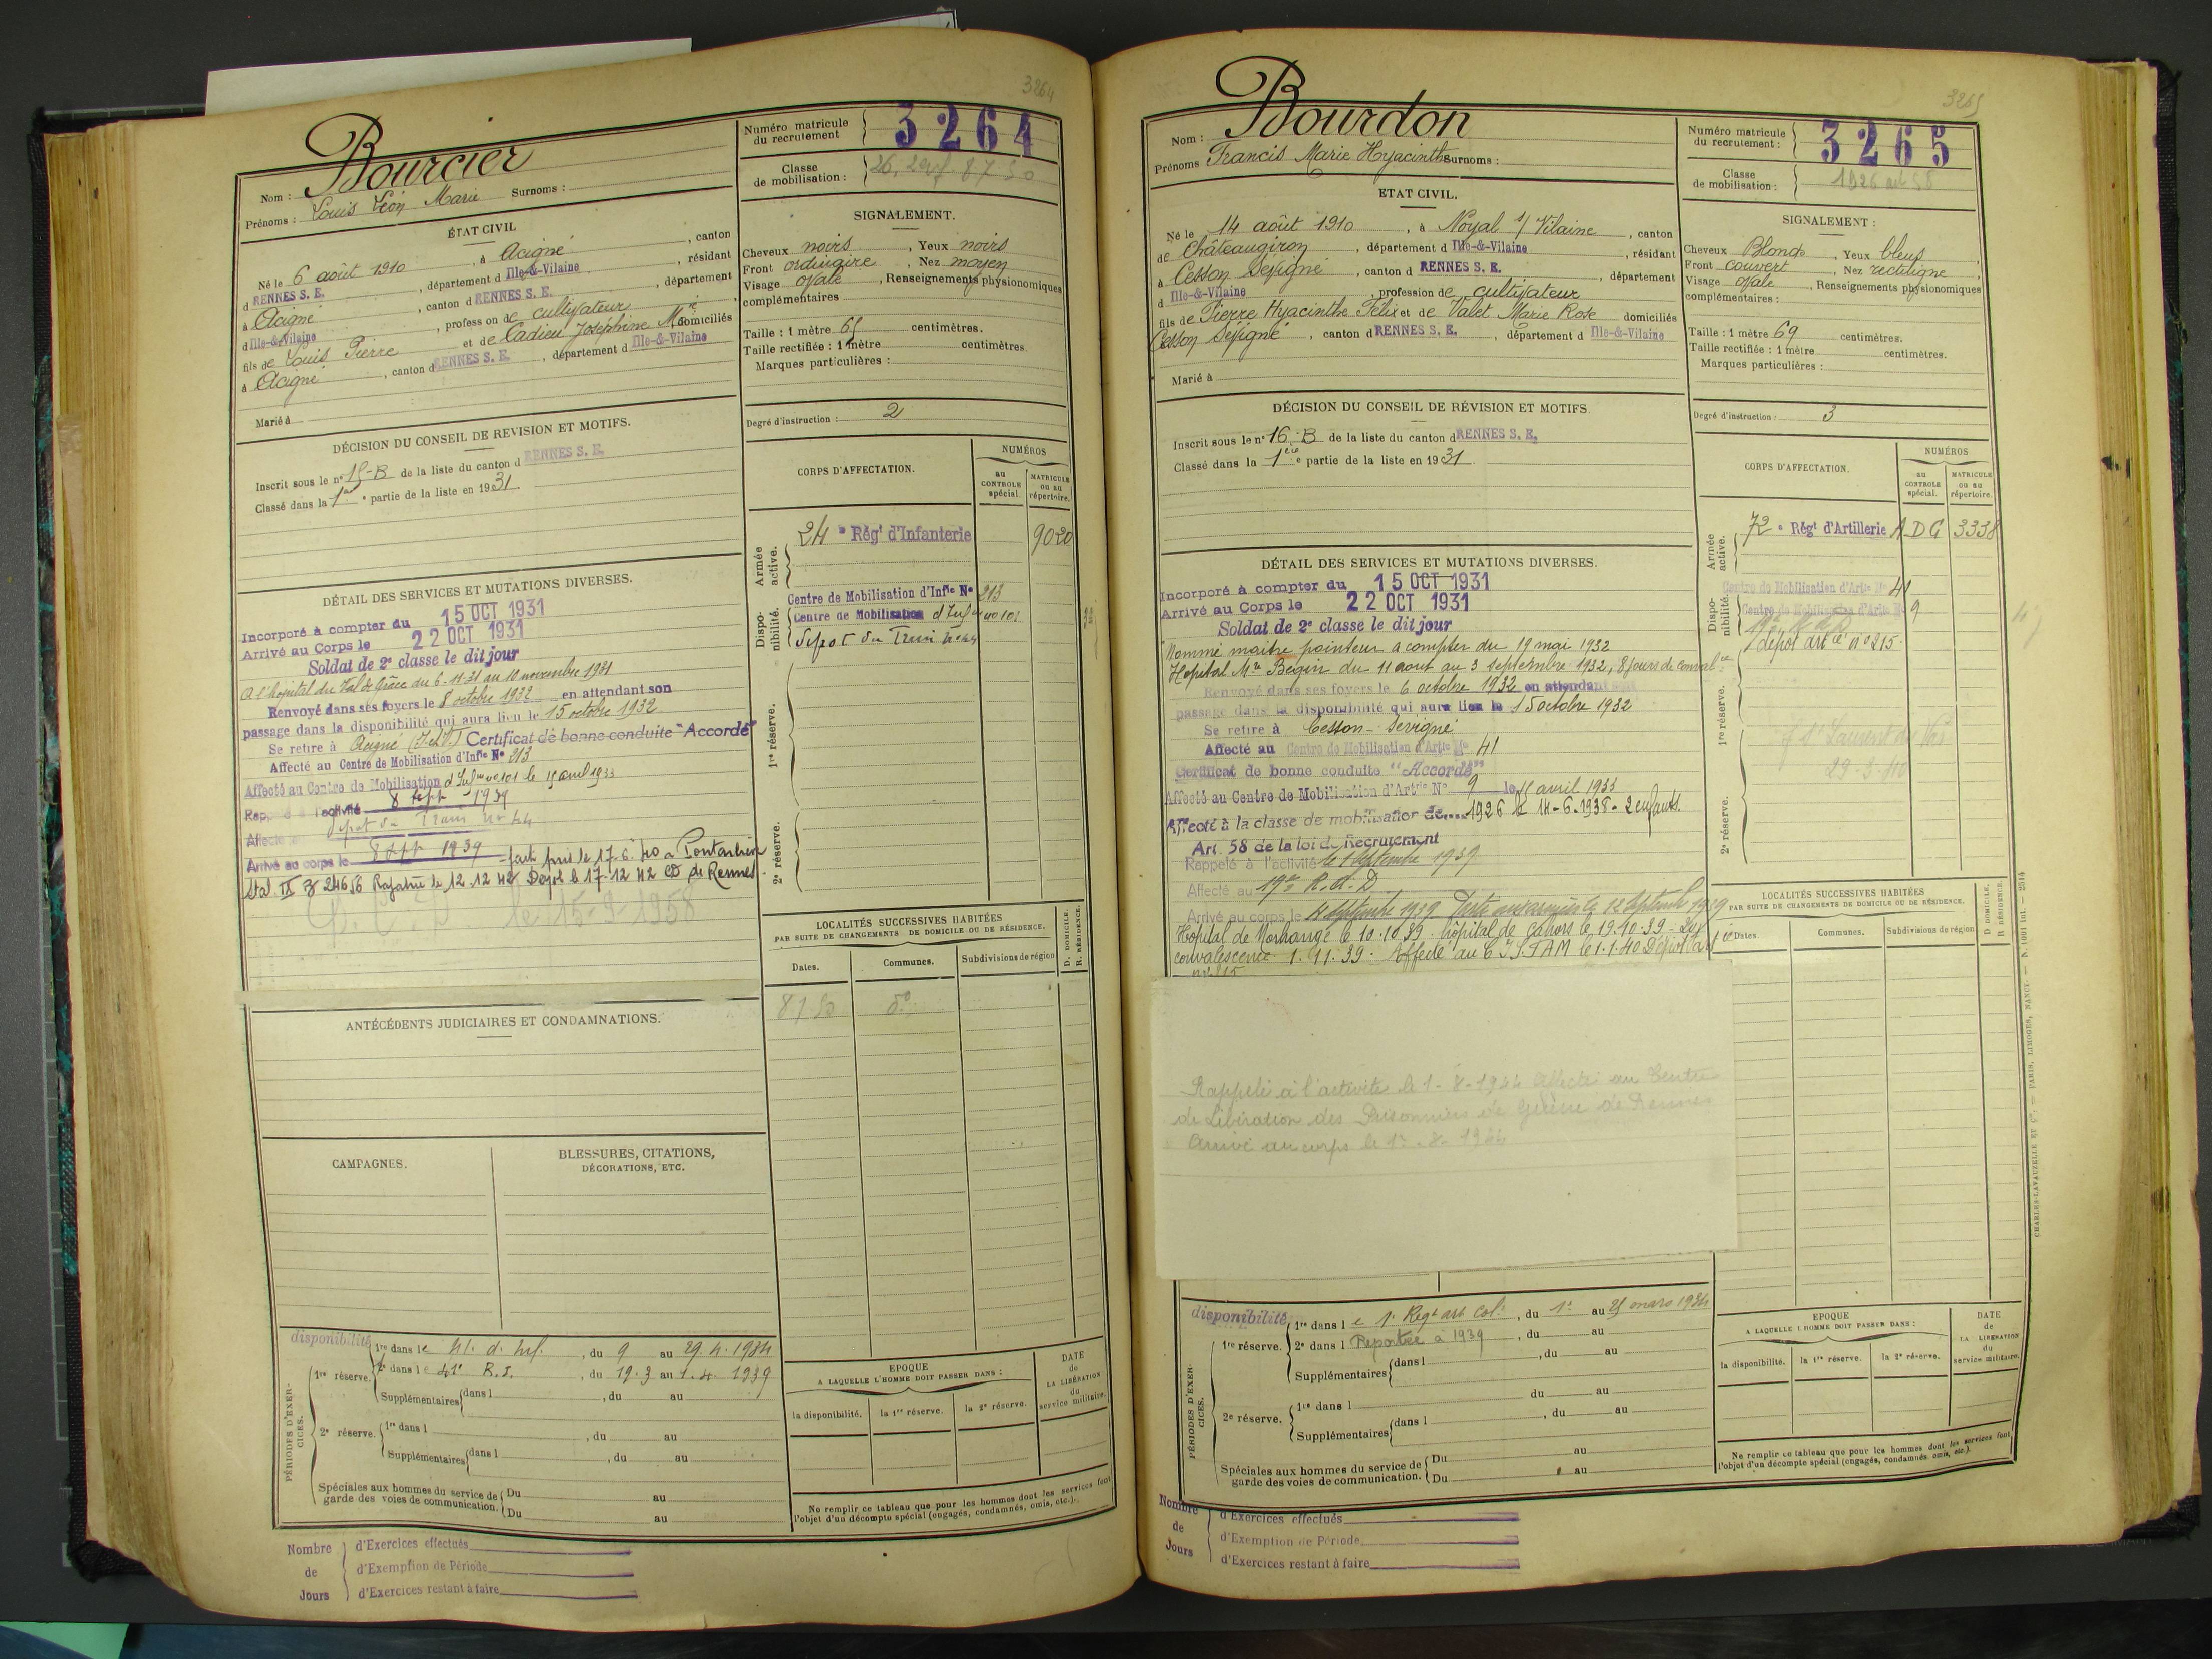 3264
Bourcier
Nom :
Prénoms : Louis Léon Marie Surnoms :
Numéro matricule du recrutement 3264
Classe de mobilisation :
ÉTAT CIVIL
Né le 6 août 1910, à Acigné, canton
d RENNES S. E., département d Ille-&-Vilaine, résidant
à Acigné, canton d RENNES S. E., département
d Ille-&-Vilaine, profession de cultivateur
fils de Louis Pierre et de Cadieu Joséphine Mie domiciliés
à Acigné, canton d RENNES S. E., département d Ille-&-Vilaine
Marié à
SIGNALEMENT.
Cheveux noirs, Yeux noirs
Front ordinaire, Nez moyen
Visage ovale, Renseignements physionomiques
complémentaires
Taille : 1 mètre 65 centimètres.
Taille rectifiée : 1 mètre centimètres.
Marques particulières :
Degré d'instruction : 2
DÉCISION DU CONSEIL DE REVISION ET MOTIFS.
Inscrit sous le n° 15-B de la liste du canton d RENNES S. E.
Classé dans la 1re partie de la liste en 1931
CORPS D'AFFECTATION.
NUMÉROS
au CONTROLE spécial.
MATRICULE ou au répertoire.
Armée active.
24e Régt d'Infanterie 9020
Disponibilité.
Centre de Mobilisation d'Infie N° 213
Centre de Mobilisation d'Infie no 101
Dépot du Train no 44
1re réserve.
2e réserve.
DÉTAIL DES SERVICES ET MUTATIONS DIVERSES.
Incorporé à compter du 15 OCT 1931
Arrivé au Corps le 22 OCT 1931
Soldat de 2e classe le dit jour
A l'hopital du Val de Grâce du 6-11-31 au 10 novembre 1931
Renvoyé dans ses foyers le 8 octobre 1932 en attendant son
passage dans la disponibilité qui aura lieu le 15 octobre 1932
Se retire à Acigné (I.et V.) Certificat de bonne conduite "Accordé"
Affecté au Centre de Mobilisation d'Infie N° 213
Affecté au Centre de Mobilisation d'Infie no 101 le 15 avril 1933
Rappelé à l'activité 8 sept 1939
Affecté au dépot du Train no 44
Arrivé au corps le 8 Sept 1939 - fait pris. le 17.6.40 a Pontarlier
Stal. IX B 24656 Rapatrié le 12.12.42 Dépot le 17-12 42 CD de Rennes
le 15-9-1958
ANTÉCÉDENTS JUDICIAIRES ET CONDAMNATIONS.
CAMPAGNES.
BLESSURES, CITATIONS,
DÉCORATIONS, ETC.
LOCALITÉS SUCCESSIVES HABITÉES
PAR SUITE DE CHANGEMENTS DE DOMICILE OU DE RÉSIDENCE.
Dates. Communes. Subdivisions de région D. DOMICILE. R. RÉSIDENCE.
disponibilité
PÉRIODES D'EXERCICES.
1re réserve.
1re dans le 41. d. inf., du 9 au 29.4.1934
2e dans le 41e R.I., du 19.3 au 1.4.1939
Supplémentaires dans l, du au
2e réserve.
1re dans l, du au
Supplémentaires dans l, du au
Spéciales aux hommes du service de garde des voies de communication.
Du au
Du au
EPOQUE
A LAQUELLE L'HOMME DOIT PASSER DANS :
la disponibilité. la 1re réserve. la 2e réserve.
DATE de LA LIBÉRATION du service militaire.
Ne remplir ce tableau que pour les hommes dont les services font
l'objet d'un décompte spécial (engagés, condamnés, omis, etc.).
Nombre de Jours
d'Exercices effectués
d'Exemption de Période
d'Exercices restant à faire
3265
Bourdon
Nom :
Prénoms Francis Marie Hyacinthe Surnoms :
Numéro matricule du recrutement : 3265
Classe de mobilisation : 1926 art 58
ETAT CIVIL.
Né le 14 août 1910, à Noyal s/ Vilaine, canton
de Châteaugiron, département d Ille-&-Vilaine, résidant
à Cesson Sévigné, canton d RENNES S. E., département
d Ille-&-Vilaine, profession de cultivateur
fils de Pierre Hyacinthe Félix et de Valet Marie Rose domiciliés
Cesson Sévigné, canton d RENNES S. E., département d Ille-&-Vilaine
Marié à
SIGNALEMENT :
Cheveux Blonds, Yeux bleus
Front couvert, Nez rectiligne
Visage ovale, Renseignements physionomiques
complémentaires :
Taille : 1 mètre 69 centimètres.
Taille rectifiée : 1 mètre centimètres.
Marques particulières :
Degré d'instruction : 3
DÉCISION DU CONSEIL DE RÉVISION ET MOTIFS.
Inscrit sous le n° 16-B de la liste du canton d RENNES S. E.
Classé dans la 1ère partie de la liste en 1931
CORPS D'AFFECTATION.
NUMÉROS
au CONTROLE spécial.
MATRICULE ou au répertoire.
Armée active.
72e Régt d'Artillerie ADG 3338
Disponibilité.
Centre de Mobilisation d'Artie N° 41
Centre de Mobilisation d'Artie N° 9
dépot artie n° 215
1re réserve.
29-3-40
2e réserve.
DÉTAIL DES SERVICES ET MUTATIONS DIVERSES.
Incorporé à compter du 15 OCT 1931
Arrivé au Corps le 22 OCT 1931
Soldat de 2e classe le dit jour
Nommé maître pointeur à compter du 19 mai 1932
Hopital Mre Begin du 11 aout au 3 septembre 1932, 8 jours de conval.ce
Renvoyé dans ses foyers le 6 octobre 1932 en attendant son
passage dans la disponibilité qui aura lieu le 15 octobre 1932
Se retire à Cesson-Sévigné
Affecté au Centre de Mobilisation d'Artie N° 41
Certificat de bonne conduite "Accordé"
Affecté au Centre de Mobilisation d'Artie N° 9 le 15 avril 1933
Affecté à la classe de mobilisation de 1926 le 14-6.1938 - 2 enfants.
Art. 58 de la loi de Recrutement
Rappelé à l'activité le 1 Septembre 1939
Affecté au 19e R.A.D
Arrivé au corps le 4 Septembre 1939 Parti aux armées le 12 Septembre 1939
Hôpital de Morhange le 10.10.39 - hôpital de Cahors le 19.10.39 - 20j
convalescence 1.11.39. Affecté au 6 J.S.TAM le 1.1.40 Dépôt d'art
n° 215
Rappelé à l'activité le 1-8-1944 affecté au Centre
de Libération des Prisonniers de Guerre de Rennes
Arrivé au corps le 1-8-1944
LOCALITÉS SUCCESSIVES HABITÉES
PAR SUITE DE CHANGEMENTS DE DOMICILE OU DE RÉSIDENCE.
Dates. Communes. Subdivisions de région D. DOMICILE. R. RÉSIDENCE.
disponibilité
PÉRIODES D'EXERCICES.
1re réserve.
1re dans le 1e Régt art Col., du 1er au 25 mars 1934
2e dans l Reportée à 1939, du au
Supplémentaires dans l, du au
du au
2e réserve.
1re dans l
Supplémentaires dans l, du au
Spéciales aux hommes du service de garde des voies de communication.
Du au
Du au
EPOQUE
A LAQUELLE L'HOMME DOIT PASSER DANS :
la disponibilité. la 1re réserve. la 2e réserve.
DATE de LA LIBÉRATION du service militaire.
Ne remplir ce tableau que pour les hommes dont les services font
l'objet d'un décompte spécial (engagés, condamnés, omis, etc.).
CHARLES-LAVAUZELLE ET Cie. — PARIS, LIMOGES, NANCY — N. 1001 int. — 2314
Nombre de Jours
d'Exercices effectués
d'Exemption de Période
d'Exercices restant à faire